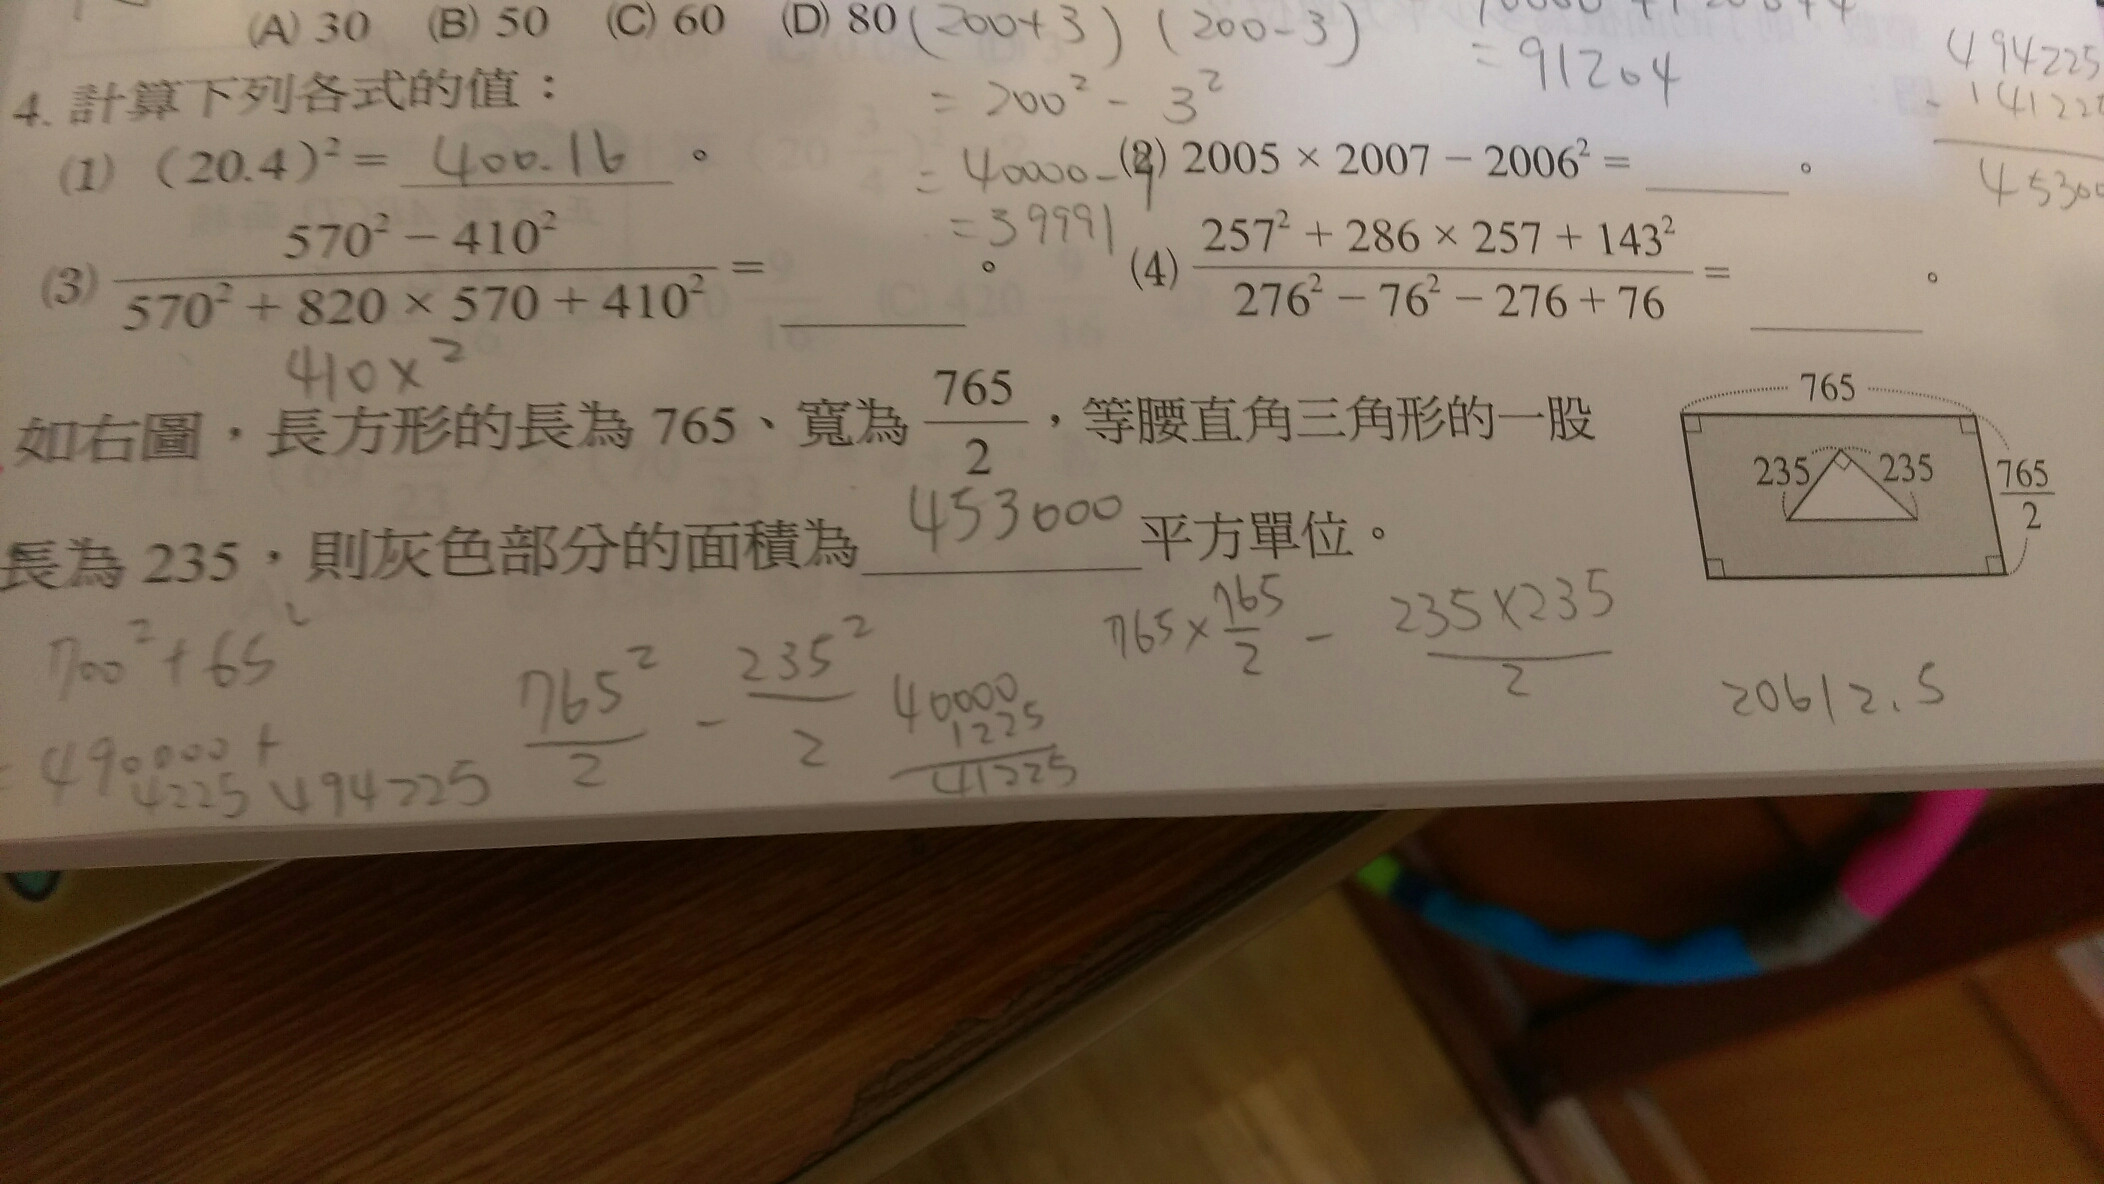 (A) 30 (B) 50 (C) 60 (D) 80 (200+3) (200-3)
= 200² - 3²
= 91204
494225
4. 計算下列各式的值：
(1) (20.4)² = 400.16 。
= 40000-9
(2) 2005 × 2007 − 2006² = ＿＿＿ 。
45300
= 39991
(3) (570² − 410²) / (570² + 820 × 570 + 410²) = ＿＿＿ 。
(4) (257² + 286 × 257 + 143²) / (276² − 76² − 276 + 76) = ＿＿＿ 。
410×2
如右圖，長方形的長為 765、寬為 765/2，等腰直角三角形的一股
長為 235，則灰色部分的面積為 453000 平方單位。
765
235 235
765/2
700² + 65²
= 490000 +
4225
494225
765²/2 - 235²/2
40000
1225
41225
765 × 765/2 - 235×235/2
20612.5